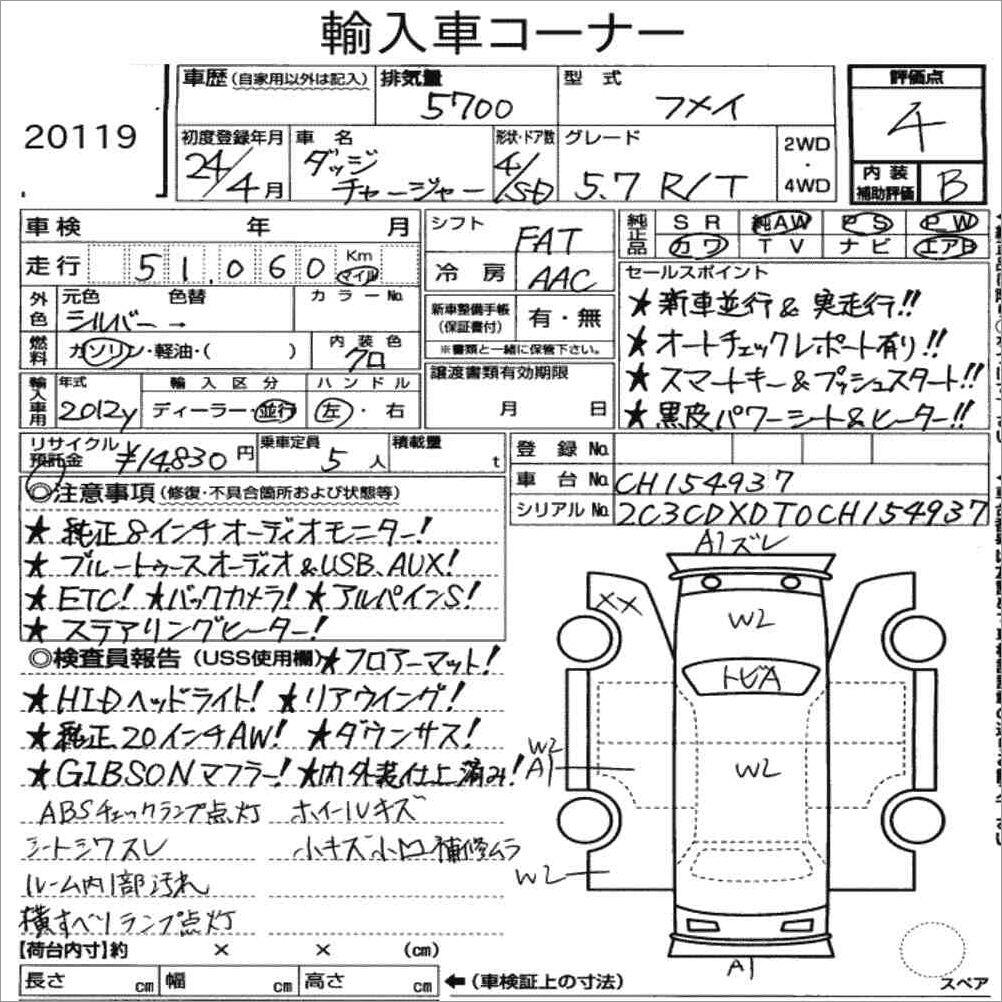 輸入車コーナー
20119
車歴(自家用以外は記入)
排気量 5700
型式 フメイ
評価点 4
初度登録年月 24/4月
車名 ダッジ チャージャー
形状・ドア数 4/SD
グレード 5.7 R/T
2WD・4WD
内装補助評価 B
車検 年 月
走行 51,060 Km マイル
シフト FAT
冷房 AAC
純正品 SR 純AW PS PW
カワ TV ナビ エアB
外色 元色 色替 カラーNo.
シルバー→
燃料 ガソリン・軽油・( ) 内装色 クロ
新車整備手帳(保証書付) 有・無
※書類と一緒に保管下さい。
セールスポイント
★新車並行&実走行!!
★オートチェックレポート有り!!
★スマートキー&プッシュスタート!!
★黒皮パワーシート&ヒーター!!
輸入車用 年式 2012y
輸入区分 ディーラー・並行
ハンドル 左・右
譲渡書類有効期限 月 日
リサイクル預託金 ¥14,830円
乗車定員 5人
積載量 t
登録No.
車台No. CH154937
シリアルNo. 2C3CDXDT0CH154937
◎注意事項(修復・不具合箇所および状態等)
★純正8インチオーディオモニター!
★ブルートゥースオーディオ&USB、AUX!
★ETC! ★バックカメラ! ★アルパインS!
★ステアリングヒーター!
◎検査員報告(USS使用欄)★フロアーマット!
★HIDヘッドライト! ★リアウイング!
★純正20インチAW! ★ダウンサス!
★GIBSONマフラー! ★内外装仕上済み!
ABSチェックランプ点灯 ホイールキズ
シートシワスレ 小キズ小凹補修ムラ
ルーム内1部汚れ
横すべりランプ点灯
A1ズレ
XX
W2
トビA
W2
A1
W2
W2
A1
【荷台内寸】約 × × (cm)
長さ cm 幅 cm 高さ cm ←(車検証上の寸法)
スペア